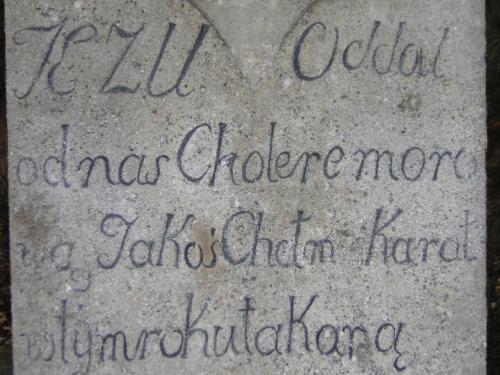 JEZU Oddal
od nas Cholere moro
wą Jakoś Chełm Karał
w tym roku ta Karą